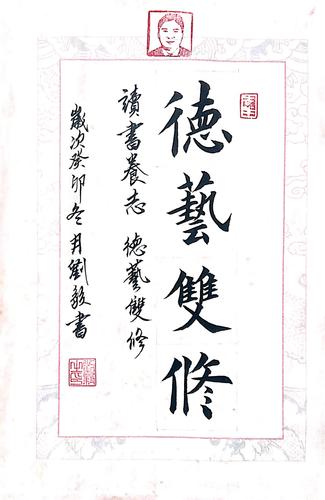 德藝雙修
讀書養志 德藝雙修
歲次癸卯冬月劉毅書